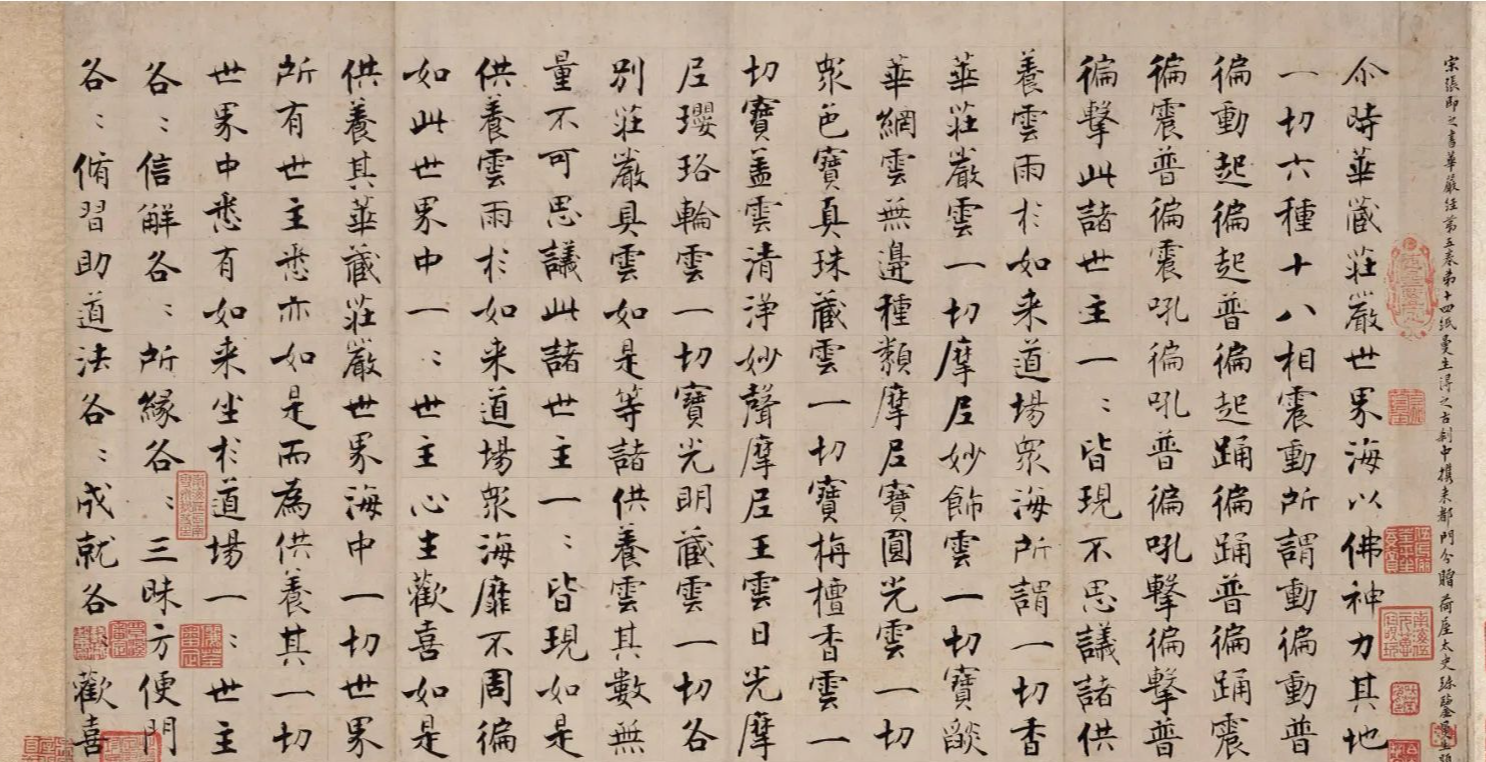 宋張即之書華嚴經第五卷弟十四紙曼生得之古刹中攜来都門分贈荷屋太史
尒時華蔵莊嚴世界海以佛神力其地
一切六種十八相震動所謂動徧動普
徧動起徧起普徧起踊徧踊普徧踊震
徧震普徧震吼徧吼普徧吼擊徧擊普
徧擊此諸世主一〻皆現不思議諸供
養雲雨於如来道場衆海所謂一切香
華莊嚴雲一切摩尼妙飾雲一切寶燄
華網雲無邊種類摩尼寶圓光雲一切
衆色寶真珠蔵雲一切寶栴檀香雲一
切寶盖雲清淨妙聲摩尼王雲日光摩
尼瓔珞輪雲一切寶光明蔵雲一切各
别莊嚴具雲如是等諸供養雲其數無
量不可思議此諸世主一〻皆現如是
供養雲雨於如来道場衆海靡不周徧
如此世界中一〻世主心生歡喜如是
供養其華蔵莊嚴世界海中一切世界
所有世主悉亦如是而為供養其一切
世界中悉有如来坐於道場一〻世主
各〻信解各〻所緣各〻三昧方便門
各〻脩習助道法各〻成就各〻歡喜